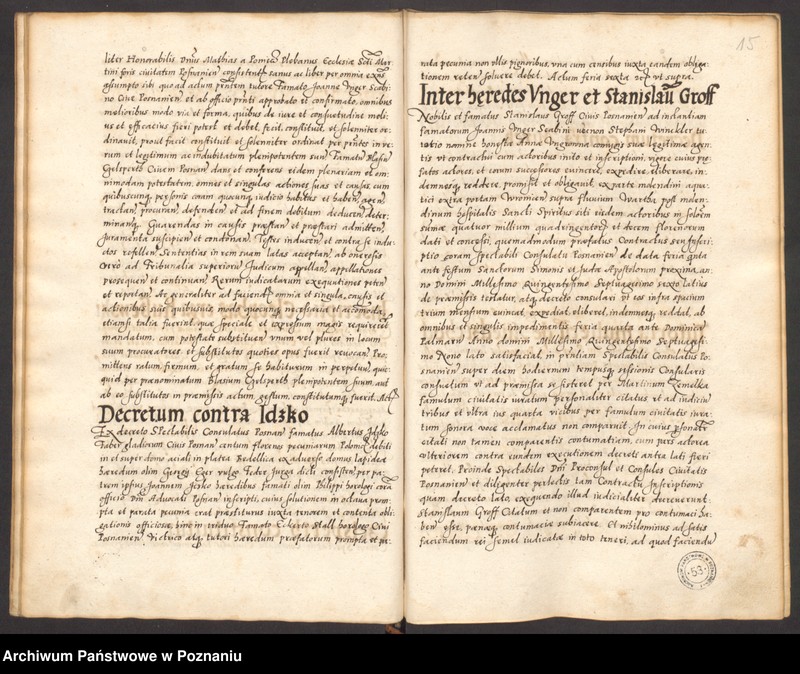 liter Honorabilis Dnus Mathias a Lomicz Plebanus Ecclesiæ Scti Mar-
tini foris civitatem Posnanien consisten sanus ac liber per omnia exns
assumpto sibi quo ad actum pntem tutore Famato Joanne Vnger Scabi-
no Cive Posnanien et ab officio pnti approbato et confirmato, omnibus
melioribus modo via et forma, quibus de iure et consuetudine meli-
us et efficacius fieri potest et debet, fecit, constituit, et solenniter or-
dinavit, prout facit constituit et solenniter ordinat per pntes in ve-
rum et legitimum ac indubitatum plenipotentem suum Famatum Blasium
Gelsperth Civem Posnan dans et conferens eidem plenariam et om-
nimodam potestatem, omnes et singulas actiones suas et causas, cum
quibuscunq personis coram quocunq iudicio habitas et haben agen
tractan procuran defenden et ad finem debitum deducen deter-
minanq Guarandas in causis præstan et præstari admitten
Juramenta suscipien et condonan Testes inducen et contra se indu-
ctos refellen Sententias in rem suam latas acceptan ab onerosis
vero ad Tribunalia superiorum Judicum appellan appellationes
prosequen et continuan Rerum iudicatarum exequutiones peten
et reportan Ac generaliter ad facien omnia et singula, causis et
actionibus suis quibusvis modo quocunq necessaria et accomoda,
etiamsi talia fuerint, quæ speciale et expressum magis requirerent
mandatum, cum potestate substituen unum vel plures in locum
suum procuratores et substitutos quoties opus fuerit revocan Pro-
mittens ratum, firmum, et gratum se habiturum in perpetuum, quic-
quid per prænominatum Blasium Gelsperth plenipotentem suum, aut
ab eo substitutos in præmissis actum, gestum, constitutumq fuerit. Act
Decretum contra Idzko
Ex decreto Spectabilis Consulatus Posnan famatus Albertus Idzko
Faber gladiorum Civis Posnan centum florenos pecuniarum Polonic debiti
in et super domo aciali in platea Bedellica ex adverso domus lapideæ
hæredum olim Georgij Eger vulgo Fedre Jurga dicti consisten per pa-
trem ipsius Joannem Jesko hæredibus famati olim Philippi horlogi corā
officio Dni Advocati Posnan inscripti, cuius solutionem in octava prom-
pta et parata pecunia erat præstiturus iuxta tenorem et contenta obli-
gationis officiosæ, hinc in triduo Famato Eckerto Stall horologo Civi
Posnanien victrico atq tutori hæredum præfatorum prompta et pa-
15
rata pecunia non ullis pignoribus, vna cum censibus iuxta eandem obliga-
tionem reten solvere debet. Actum feria sexta ut supra.
Inter heredes Vnger et Stanislaū Groff
Nobilis et famatus Stanislaus Groff Civis Posnanien ad instantiam
famatorum Joannis Vnger Scabini necnon Stephani Winckler tu-
torio nomine honestæ Annæ Vngrowna coniugis suæ legitimæ agen-
tis vt contractui cum actoribus inito et inscriptioni, vigore cuius præ-
fatos actores, et eorum successores evincere, expedire, eliberare, in-
demnesq reddere, promisit et obligavit, ex parte molendini aqua-
tici extra portam Wroniien supra fluvium Wartha post molen-
dinum hospitalis Sancti Spiritus siti eisdem actoribus in solutum
sumæ quatuor millium quadringentorū et decem florenorum
dati et concessi, quemadmodum præfatus Contractus seu Inscri-
ptio coram Spectabili Consulatu Posnanien de data feria quinta
ante festum Sanctorum Simonis et Judæ Apostolorum proxima, an-
no Domini Millesimo Quingentesimo Septuagesimo sexto latius
de præmissis testatur, atq decreto consulari vt eos infra spacium
trium mensium evincat, expediat, eliberet, indemnesq reddat, ab
omnibus et singulis impedimentis feria quarta ante Dominicam
Palmarum Anno domini Millesimo Quingentesimo Septuagesi-
mo Nono lato satisfaciat, in pntiam Spectabilis Consulatus Po-
snanien super diem hodiernum tempusq sessionis Consularis
consuetum vt ad præmissa se sisteret per Martinum Remelka
famulum civitatis iuratum personaliter citatus et ad iudicium
tribus et vltra ius quarta vicibus per famulum civitatis iura-
tum sonora voce acclamatus non comparuit. In cuius personalr
citati non tamen comparentis contumatiam, cum pars actorea
vlteriorem contra eundem executionem decreti antea lati fieri
peteret. Proinde Spectabiles Dni Proconsul et Consules Civitatis
Posnanien et diligenter perlectis tam Contractu Inscriptionis
quam decreto lato, exequendo illud iudicialiter decreverunt
Stanislaum Groff Citatum et non comparentem pro contumaci ha-
ben esse, pœnæq contumaciæ subiacere. Et nihilominus ad satis
faciendum rei semel iudicatæ in toto teneri, ad quod faciendū
53
Archiwum Państwowe w Poznaniu